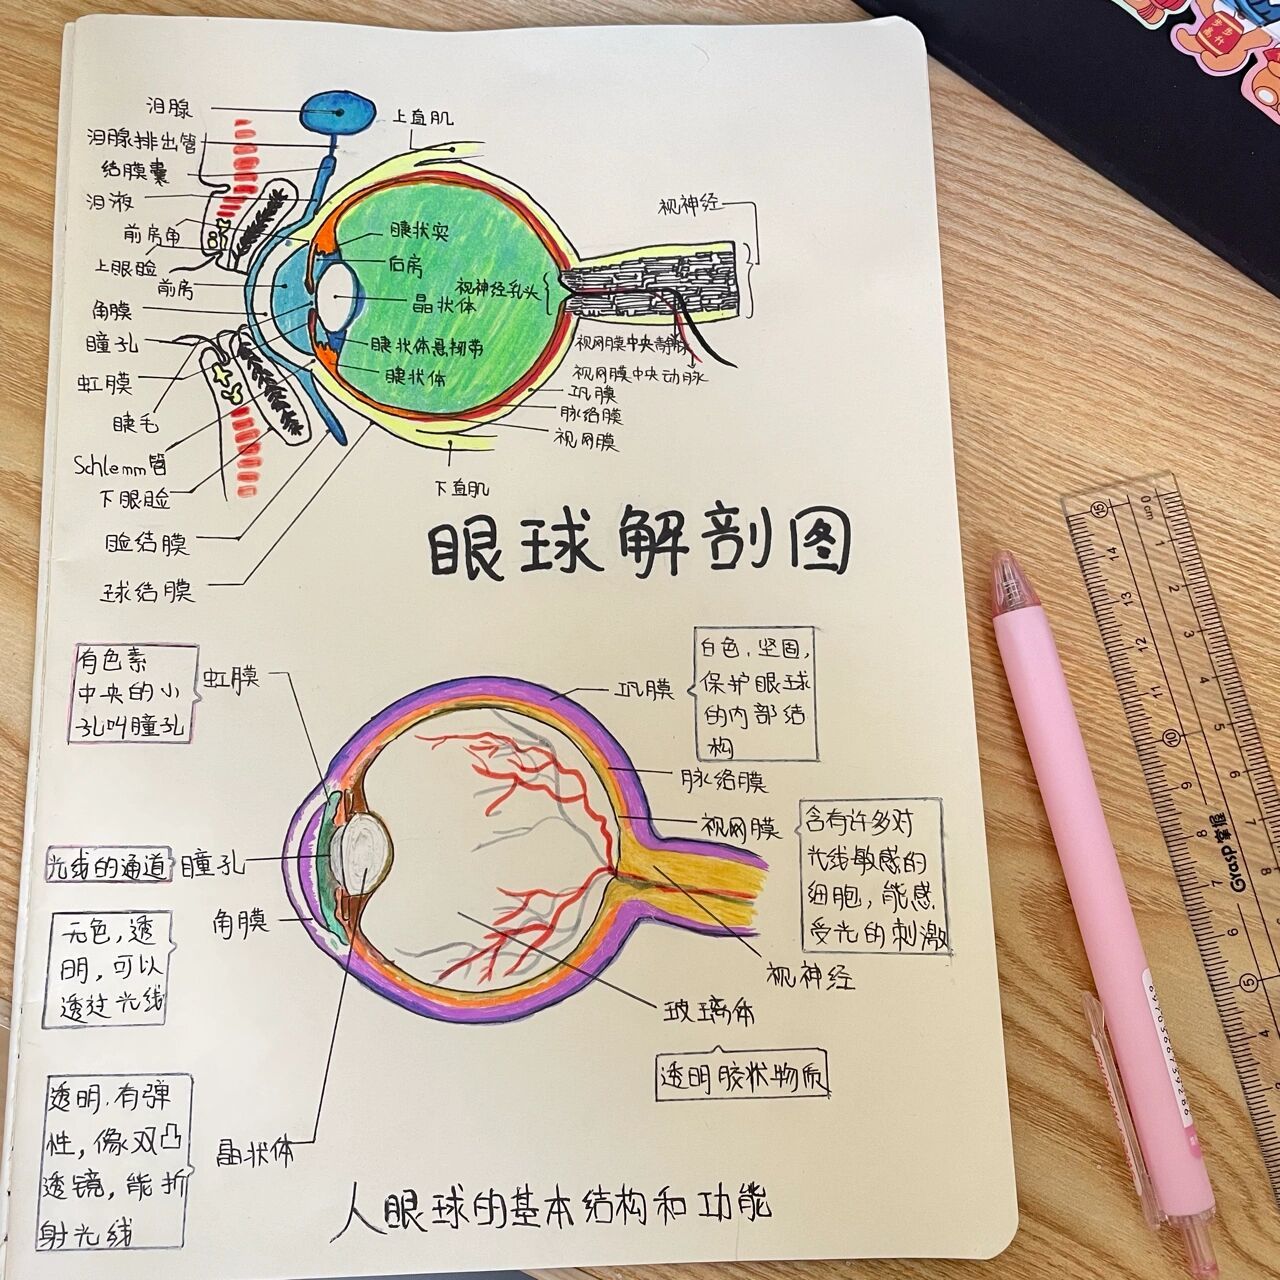 泪腺
泪腺排出管
结膜囊
泪液
前房角
上眼睑
前房
角膜
瞳孔
虹膜
睫毛
Schlemm管
下眼睑
睑结膜
球结膜
上直肌
睫状突
后房
晶状体
睫状体悬韧带
睫状体
视神经乳头
视神经
视网膜中央静脉
视网膜中央动脉
巩膜
脉络膜
视网膜
下直肌
眼球解剖图
有色素
中央的小
孔叫瞳孔
虹膜
光线的通道
瞳孔
角膜
无色,透
明,可以
透过光线
透明,有弹
性,像双凸
透镜,能折
射光线
晶状体
巩膜
白色,坚固,
保护眼球
的内部结
构
脉络膜
视网膜
含有许多对
光线敏感的
细胞,能感
受光的刺激
视神经
玻璃体
透明胶状物质
人眼球的基本结构和功能
步步
高升
0cm
1
2
3
4
5
6
7
8
15
14
13
12
11
10
9
8
7
6
5
4
3
2
Grasp掌握